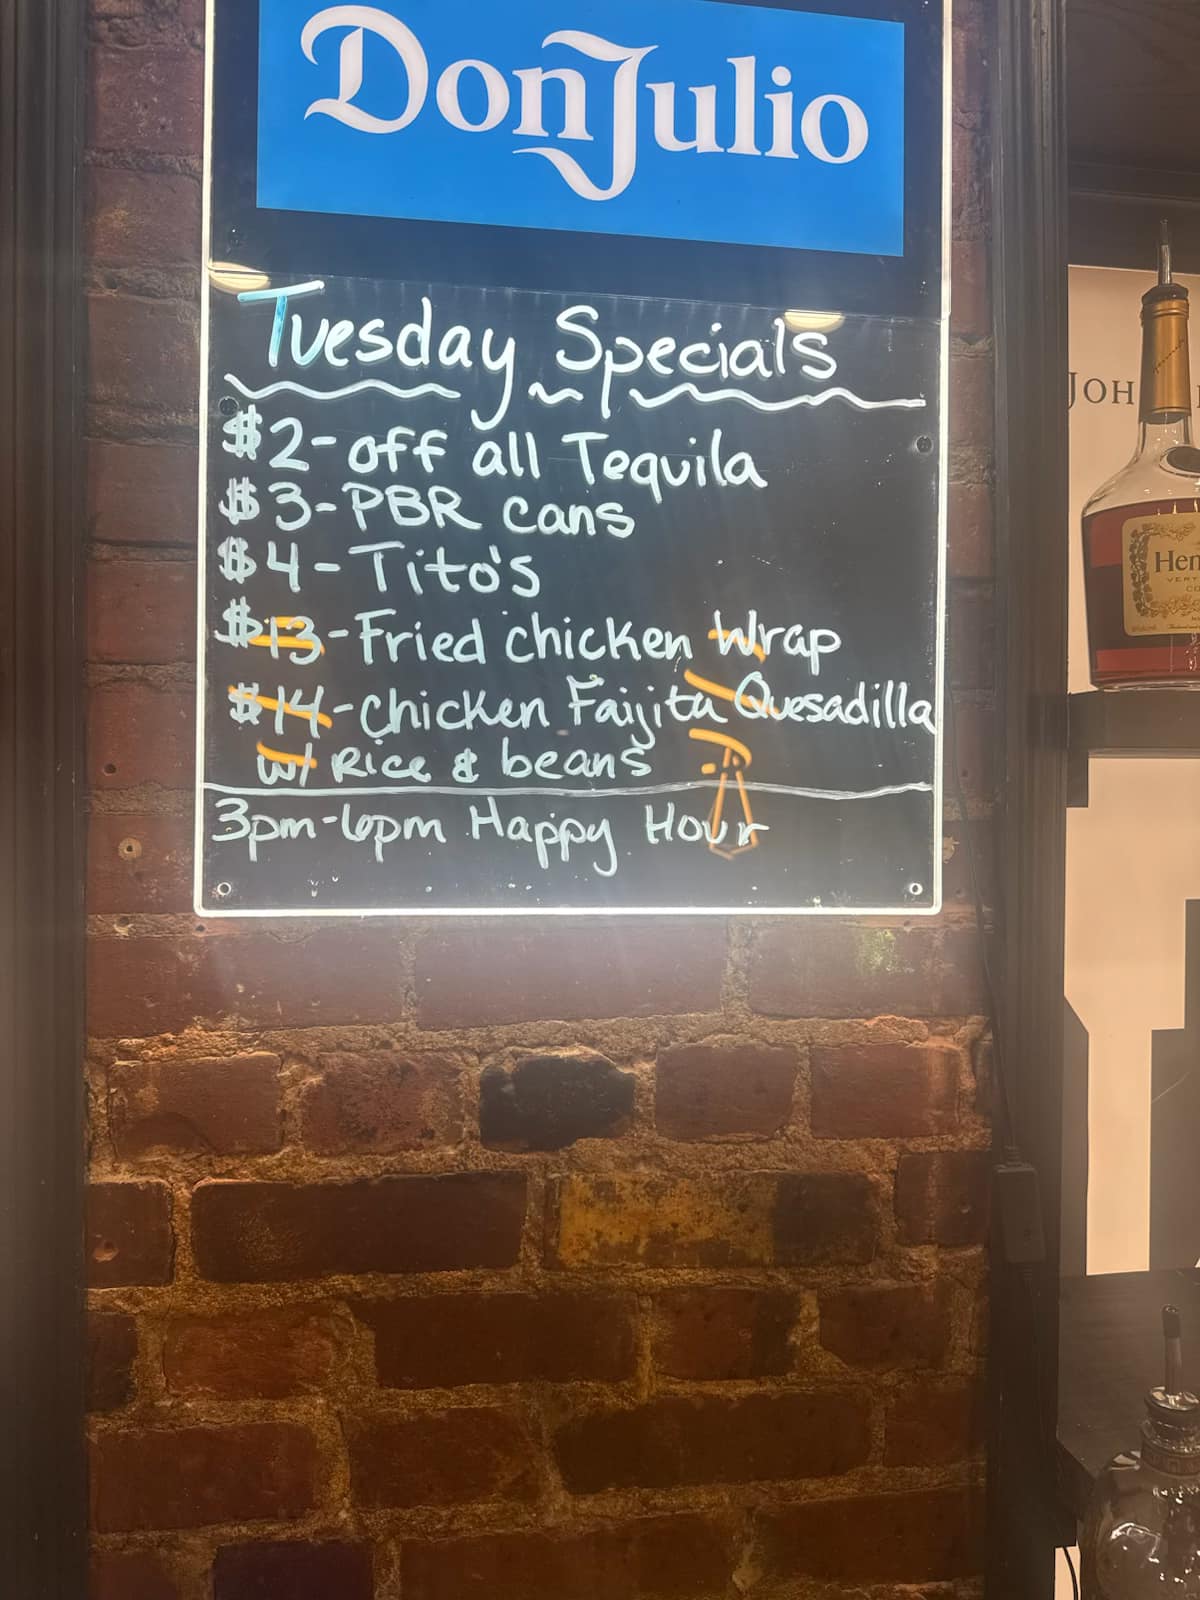 Don Julio
Tuesday Specials
$2-off all Tequila
$3-PBR cans
$4-Tito's
$13-Fried chicken Wrap
$14-chicken Faijita Quesadilla
w/ Rice & beans
3pm-6pm Happy Hour
JOH
Hen
VERY